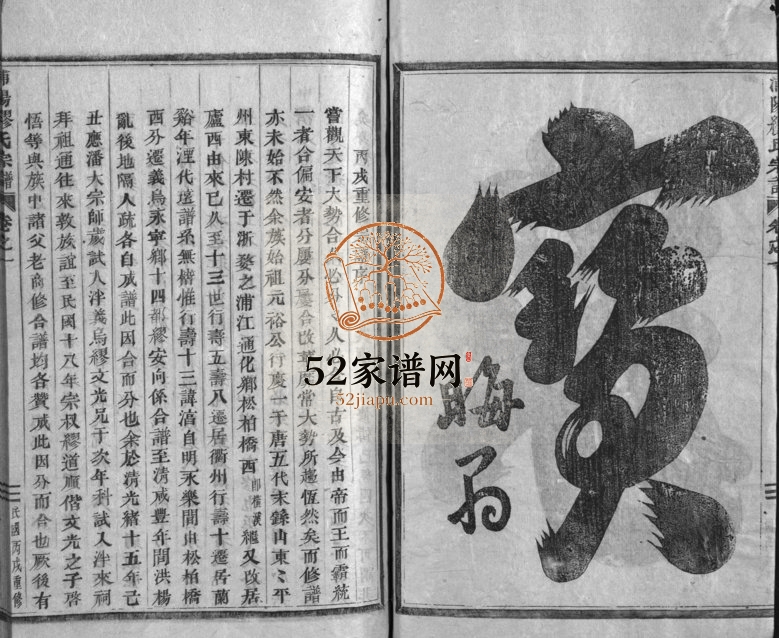 寶
晦翁
丙戌重修
嘗觀天下大勢合必分人自古及今由帝而王而霸統
一者合偏安者分屢分屢合改常大勢所趨恆然矣而修譜
亦未始不然余族始祖元裕公行慶一于唐五代末錄山東〻平
州東陳村遷于浙婺之浦江通化鄉松柏橋西繼又改居
廬西由來已久至十三世行壽五壽八遷居衢州行壽十遷居蘭
谿年湮代遠譜系無稽惟行壽十三諱滈自明永樂間由松柏橋
西分遷義烏永寧鄉十四都繆安向係合譜至清咸豐年間洪楊
亂後地隔人疏各自成譜此因合而分也余於清光緒十五年己
丑應潘大宗師歲試入泮義烏繆文光兄于次年科試入泮來祠
拜祖通往來敦族誼至民國十八年宗叔繆道廣偕文光之子啓
悟等與族中諸父老商修合譜均各贊成此因分而合也厥後有
浦陽繆氏宗譜 卷之一
民國丙戌重修
52家谱网
52jiapu.com